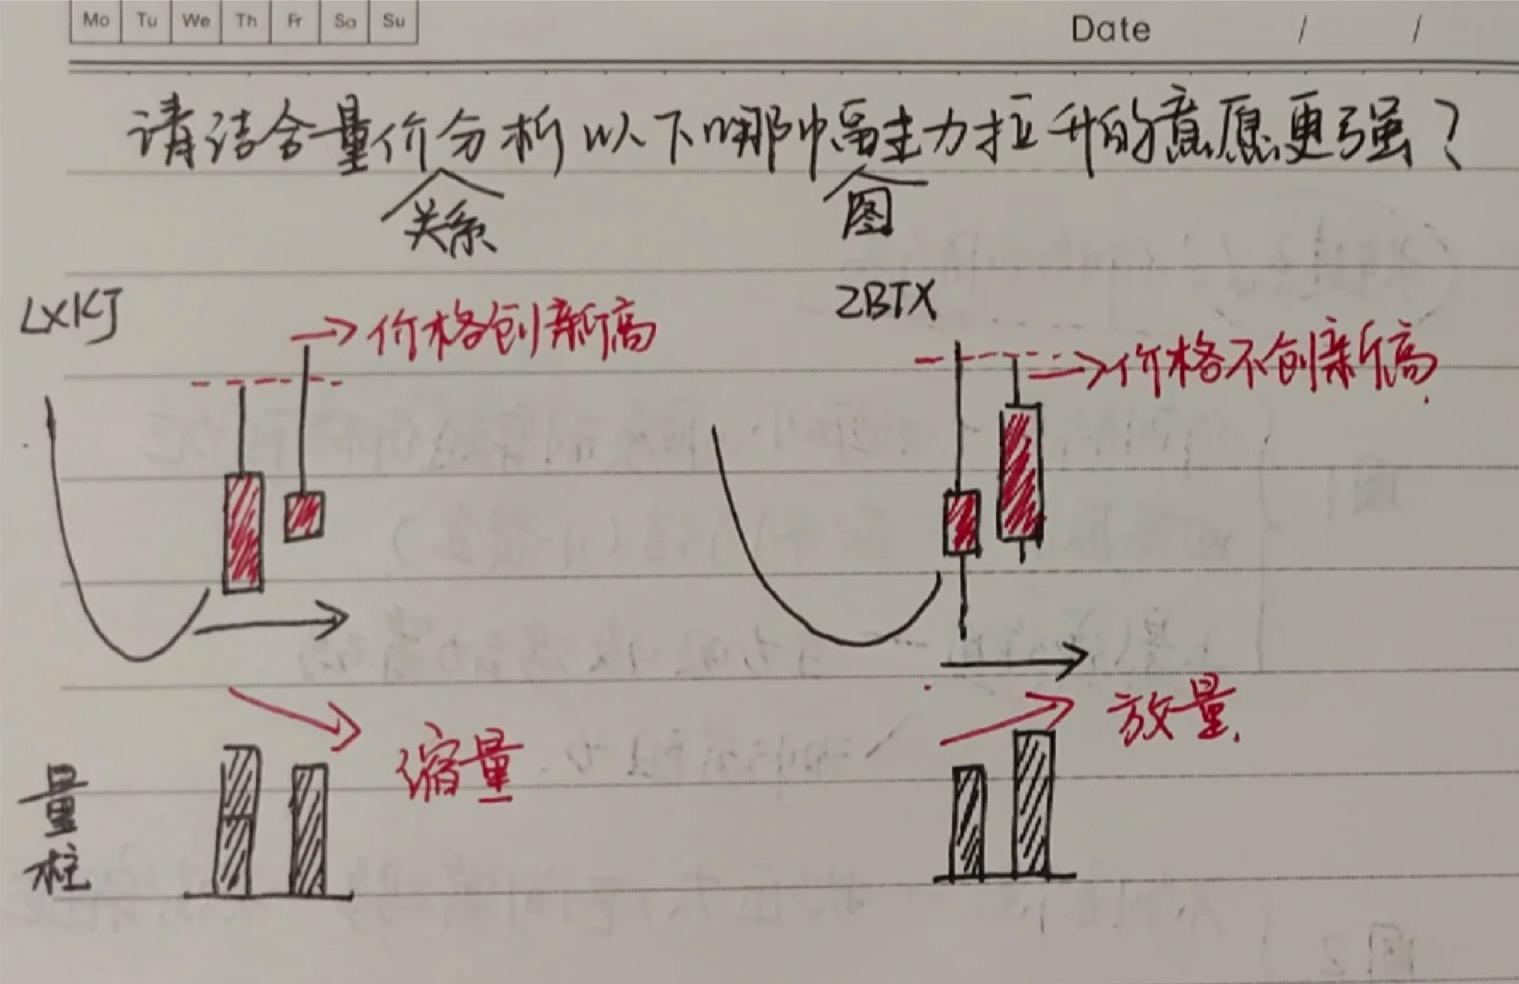 Mo Tu We Th Fr Sa Su
Date / /
请结合量价分析以下哪幅主力拉升的意愿更强？
关系
图
LXKJ
价格创新高
ZBTX
价格不创新高
缩量
放量
量柱